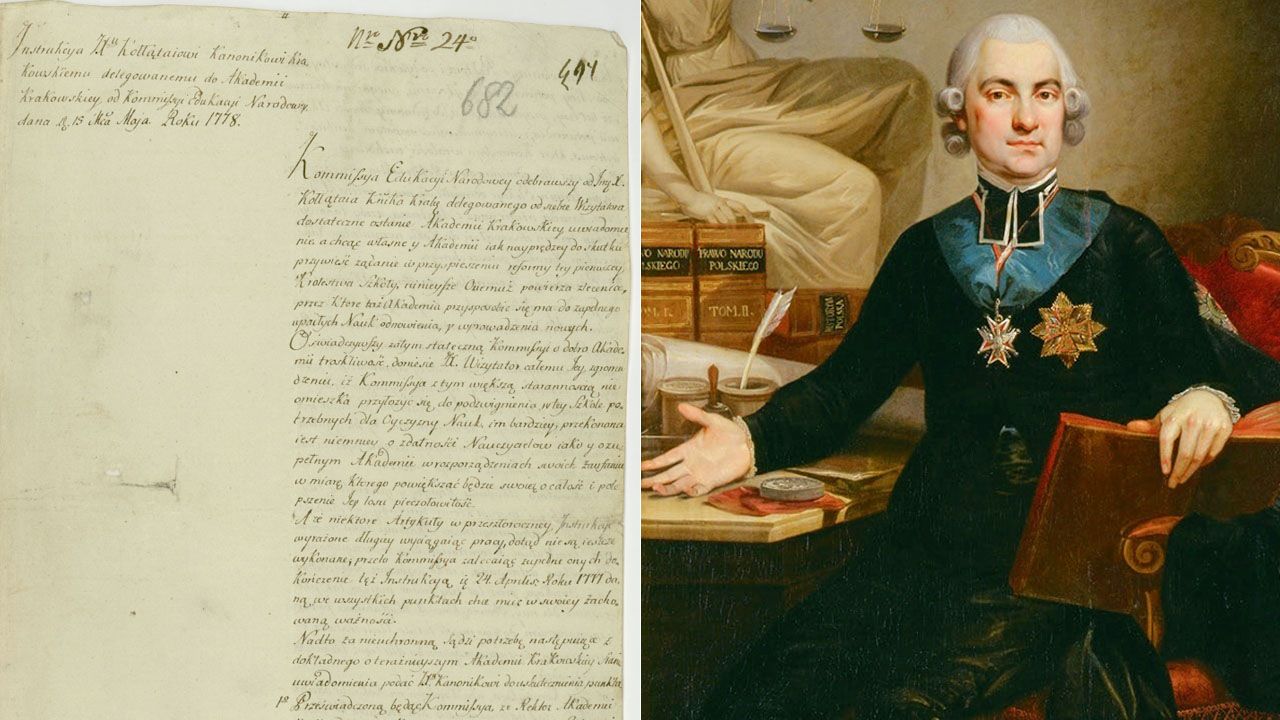 Instrukcya Xu Kołłątaiowi Kanonikowi Kra
kowskiemu delegowanemu do Akademii
Krakowskiey, od Kommissyi Edukacyi Narodowey
dana D. 15 Mca Maja Roku 1778.
Nro Nro 24o
682
Kommissya Edukacyi Narodowey odebrawszy od Jmć X.
Kołłątaia Knika Kralg delegowanego od siebie Wizytatora
dostateczne o stanie Akademii Krakowskiey uwiadomie
nie, a chcąc własne y Akademii iak nayprędzey do skutku
przywieść żądanie w przyspieszeniu reformy tey pierwszey
Krolestwa Szkoły, ninieysze Onemuż powierza zlecenia,
przez ktore taż Akademia przysposobić się ma do zupełnego
upadłych Nauk odnowienia, y wprowadzenia nowych.
Oświadczywszy zatym stateczną Kommissyi o dobro Akade
mii troskliwość, doniesie X. Wizytator całemu Jey zgroma
dzeniu, iż Kommissya z tym większą starannością nie
omieszka przyłożyć się do podzwignienia w tey Szkole po
trzebnych dla Oyczyzny Nauk, im bardziey, przekonana
iest niemniey o zdatności Nauczycielow iako y o zu
pełnym Akademii w rozporządzeniach swoich zaufaniu
w miarę, ktorego powiększać będzie swoię o całość i pole
pszenie Jey losu pieczołowitość.
A że niektore Artykuły w przeszłoroczney Instrukcyi
wyrażone dłuższy wyciągaiąc pracy, dotąd nie są ieszcze
wykonane, przeto Kommissya zalecaiąc zupełne onych do
kończenie, też Instrukcyą, iż 24 Aprilis Roku 1777 da
ną, we wszystkich punktach chce mieć w swoiey zacho
waną ważności.
Nadto za nieuchronną sądzi potrzebę następuiące z
dokładnego o teraźnieyszym Akademii Krakowskiey Stanie
uwiadomienia podać Xu Kanonikowi do uskutecznienia punkta
1o Przeświadczoną będąc Kommissya, ze Rektor Akademii
WO NARODU
LSKIEGO
TOM. I.
PRAWO NARODU
POLSKIEGO
TOM. II.
POLSKA